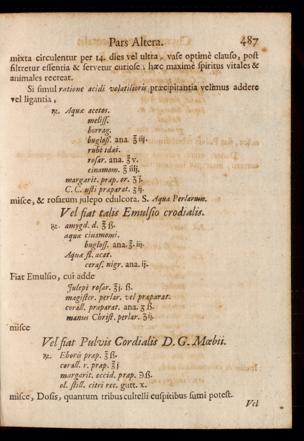 Pars Altera. 487
mixta circulentur per 14. dies vel ultra, vase optimè clauso, post
filtretur essentia & servetur curiose: hæc maximè spiritus vitales &
animales recreat.
Si simul ratione acidi volatilioris præcipitantia velimus addere
vel ligantia,
℞. Aquæ acetos.
meliss.
borrag.
bugloss. ana. ℥iij.
rubi idæi.
rosar. ana ℥v.
cinamom. ℥iiij.
margarit. præp. or. ʒj.
C. C. usti præparat. ʒij.
misce, & rosatum julepo edulcora. S. Aqua Perlarum.
Vel fiat talis Emulsio crodialis.
℞. amygd. d. ℥ß.
aquæ cinamomi.
bugloss. ana. ℥iij.
Aquæ fl. acat.
ceras. nigr. ana ij.
Fiat Emulsio, cui adde
Julepi rosar. ℥j. ß.
magister. perlar. vel præparat.
corall. præparat. ana ʒß.
manus Christ. perlar. ʒij.
misce
Vel fiat Pulvis Cordialis D. G. Mœbii.
℞. Eboris præp. ℥ß.
corall. r. præp. ʒj
margarit. occid. præp. ℈ß.
ol. still. citri rec. gutt. x.
misce, Dosis, quantum tribus cultelli cuspitibus sumi potest.
Vel